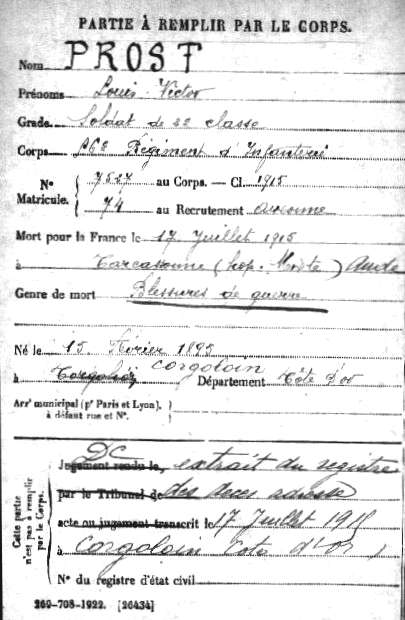 PARTIE À REMPLIR PAR LE CORPS.
Nom PROST
Prénoms Louis Victor
Grade Soldat de 2e classe
Corps Régiment d'Infanterie
N° Matricule. 7527 au Corps. — Cl. 1915
74 au Recrutement
Mort pour la France le 17 Juillet 1915
à Carcassonne (hop. Mixte) Aude
Genre de mort Blessures de guerre
Né le 15 Février 1895
à Corgoloin Département Côte d'or
Arrᵗ municipal (pʳ Paris et Lyon),
à défaut rue et N°.
Jugement rendu le, DC extrait du registre
par le Tribunal de des deces adresse
acte ou jugement transcrit le 17 Juillet 1915
à Corgoloin Cote d'Or
N° du registre d'état civil
Cette partie n'est pas à remplir par le Corps.
269-708-1922. [26434]